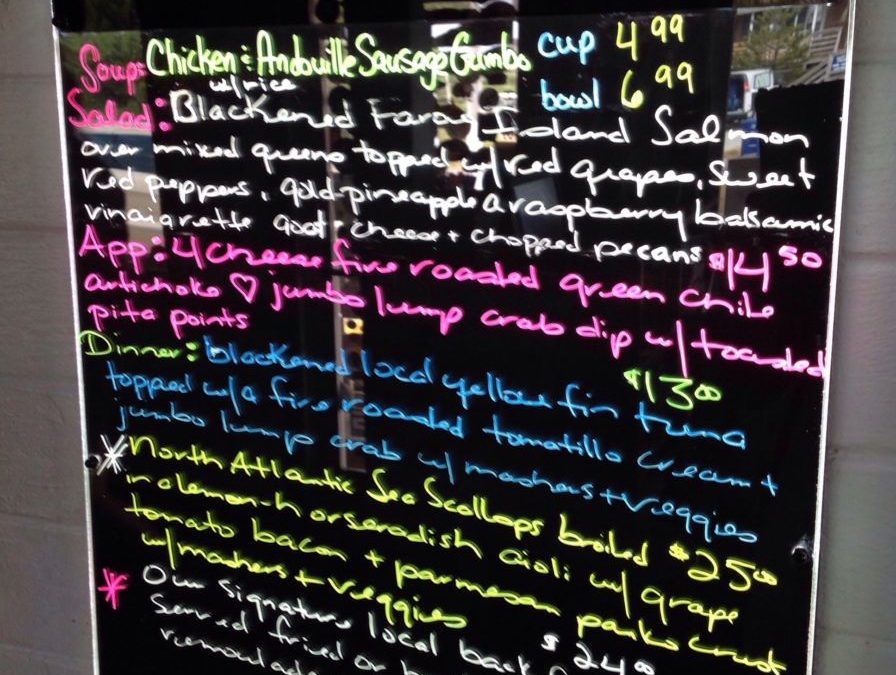 Soup: Chicken & Andouille Sausage Gumbo cup 4 99
w/rice bowl 6 99
Salad: Blackened Faroe Island Salmon
over mixed greens topped w/red grapes, sweet
red peppers, gold-pineapple a raspberry balsamic
vinaigrette goat-cheese + chopped pecans $14 50
App: 4 cheese fire roasted green chile
artichoke ♡ jumbo lump crab dip w/ toasted
pita points $13 00
Dinner: blackened local yellow fin tuna
topped w/a fire roasted tomatillo cream +
jumbo lump crab w/ mashers + veggies
* North Atlantic Sea Scallops broiled $25 00
in a lemon-horseradish aioli w/ grape
tomato bacon + parmesan panko crust
w/mashers + veggies $24 00
* Our signature local back
served fried or
remoulade